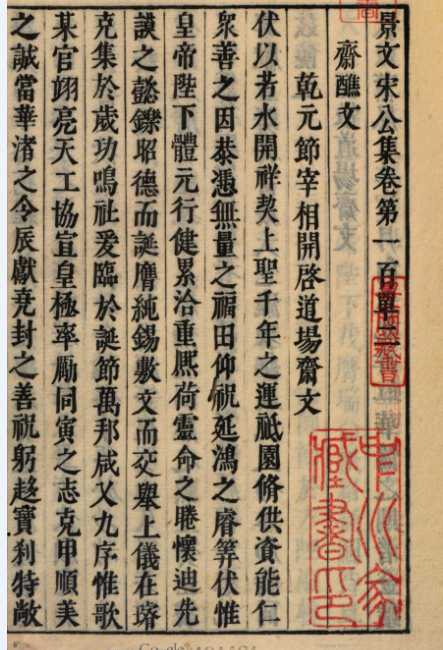 景文宋公集卷第一百單
齋醮文
乾元節宰相開啓道場齋文
伏以若水開祥契上聖千年之運祗園脩供資能仁
衆善之因恭憑無量之福田仰祝延鴻之睿筭伏惟
皇帝陛下體元行健累洽重熈荷靈命之睠懷迪先
謨之懿鑠昭德而誕膺純錫敷文而交舉上儀在璿
克集於歲功鳴社爰臨於誕節萬邦咸乂九序惟歌
某官翊亮天工協宣皇極率勵同寅之志克申順美
之誠當華渚之令辰獻堯封之善祝躬趍寶刹特敞